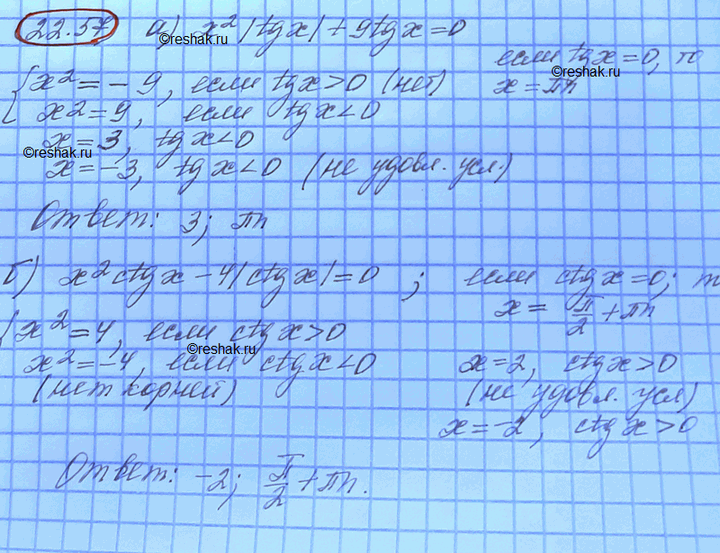 22.57 а) x² |tgx| + 9tgx = 0
©reshak.ru
если tgx = 0, то
x = πn
©reshak.ru
x² = -9, если tgx > 0 (нет)
x² = 9, если tgx < 0
x = 3, tgx < 0
©reshak.ru
x = -3, tgx < 0 (не удовл. усл.)
Ответ: 3; πn
б) x² ctgx - 4|ctgx| = 0 ; если ctgx = 0; т
x = π/2 + πn
x² = 4, если ctgx > 0
©reshak.ru
x² = -4, если ctgx < 0
(нет корней)
x = 2, ctgx > 0
(не удовл. усл)
x = -2, ctgx > 0
Ответ: -2; π/2 + πn.